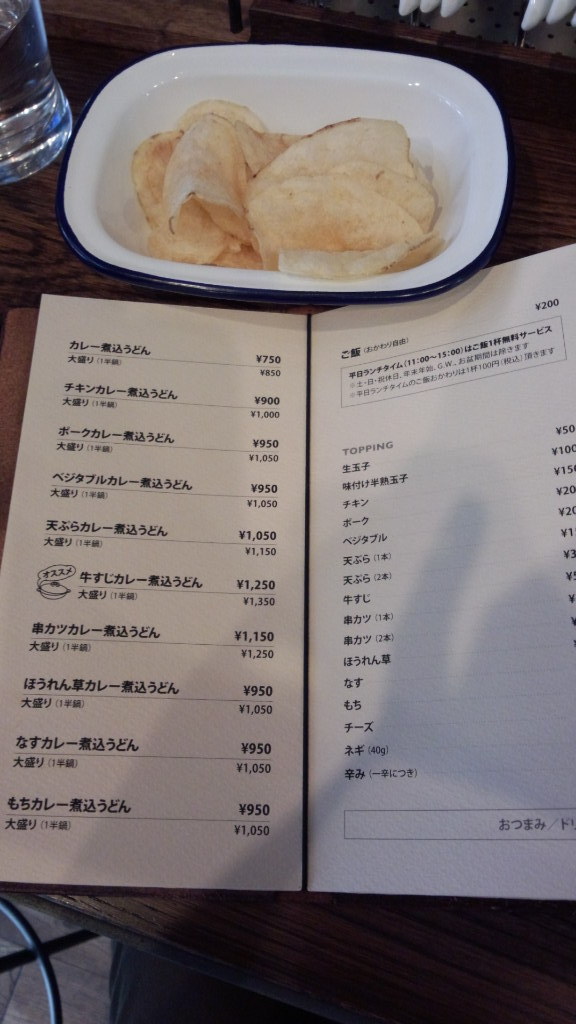 カレー煮込うどん ¥750
大盛り（1半鍋） ¥850
チキンカレー煮込うどん ¥900
大盛り（1半鍋） ¥1,000
ポークカレー煮込うどん ¥950
大盛り（1半鍋） ¥1,050
ベジタブルカレー煮込うどん ¥950
大盛り（1半鍋） ¥1,050
天ぷらカレー煮込うどん ¥1,050
大盛り（1半鍋） ¥1,150
オススメ 牛すじカレー煮込うどん ¥1,250
大盛り（1半鍋） ¥1,350
串カツカレー煮込うどん ¥1,150
大盛り（1半鍋） ¥1,250
ほうれん草カレー煮込うどん ¥950
大盛り（1半鍋） ¥1,050
なすカレー煮込うどん ¥950
大盛り（1半鍋） ¥1,050
もちカレー煮込うどん ¥950
大盛り（1半鍋） ¥1,050
ご飯（おかわり自由） ¥200
平日ランチタイム（11:00〜15:00）はご飯1杯無料サービス
※土・日・祝休日、年末年始、G.W.、お盆期間は除きます
※平日ランチタイムのご飯おかわりは1杯100円（税込）頂きます
TOPPING
生玉子 ¥50
味付け半熟玉子 ¥100
チキン ¥150
ポーク
ベジタブル
天ぷら（1本）
天ぷら（2本）
牛すじ
串カツ（1本）
串カツ（2本）
ほうれん草
なす
もち
チーズ
ネギ（40g）
辛み（一辛につき）
おつまみ／ドリ